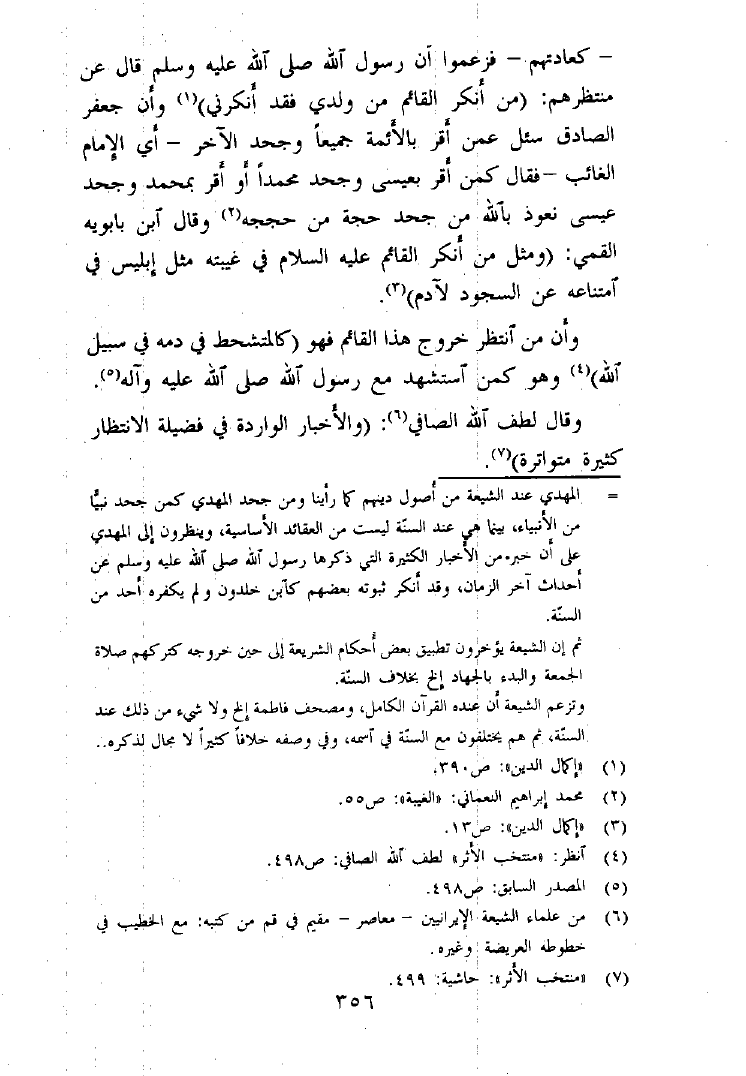 – كعادتهم – فزعموا أن رسول ٱلله صلى ٱلله عليه وسلم قال عن
منتظرهم: (من أَنكر القائم من ولدي فقد أَنكرني)(١) وأَن جعفر
الصادق سئل عمن أَقر بالأَئمة جميعاً وجحد الآخر – أَي الإِمام
الغائب –فقال كمن أَقر بعيسى وجحد محمداً أَو أَقر بمحمد وجحد
عيسى نعوذ بٱلله من جحد حجة من حججه(٢) وقال ٱبن بابويه
القمي: (ومثل من أَنكر القائم عليه السلام في غيبته مثل إِبليس في
ٱمتناعه عن السجود لآدم)(٣).
وأَن من ٱنتظر خروج هذا القائم فهو (كالمتشحط في دمه في سبيل
ٱلله)(٤) وهو كمن ٱستشهد مع رسول ٱلله صلى ٱلله عليه وآله(٥).
وقال لطف ٱلله الصافي(٦): (والأَخبار الواردة في فضيلة الانتظار
كثيرة متواترة)(٧).
= المهدي عند الشيعة من أُصول دينهم كما رأَينا ومن جحد المهدي كمن جحد نبيًّا
من الأَنبياء، بينما هي عند السنّة ليست من العقائد الأَساسية، وينظرون إِلى المهدي
على أَن خبره من الأَخبار الكثيرة التي ذكرها رسول ٱلله صلى ٱلله عليه وسلم عن
أَحداث آخر الزمان، وقد أَنكر ثبوته بعضهم كٱبن خلدون ولم يكفره أَحد من
السنّة.
ثم إِن الشيعة يؤخرون تطبيق بعض أَحكام الشريعة إِلى حين خروجه كتركهم صلاة
الجمعة والبدء بالجهاد إِلخ بخلاف السنّة.
وتزعم الشيعة أَن عنده القرآن الكامل، ومصحف فاطمة إِلخ ولا شيء من ذلك عند
السنّة، ثم هم يختلفون مع السنّة في ٱسمه، وفي وصفه خلافاً كثيراً لا مجال لذكره..
(١) «إِكمال الدين»: ص٣٩٠.
(٢) محمد إِبراهيم النعماني: «الغيبة»: ص٥٥.
(٣) «إِكمال الدين»: ص١٣.
(٤) ٱنظر: «منتخب الأَثر» لطف ٱلله الصافي: ص٤٩٨.
(٥) المصدر السابق: ص٤٩٨.
(٦) من علماء الشيعة الإِيرانيين – معاصر – مقيم في قم من كتبه: مع الخطيب في
خطوطه العريضة وغيره.
(٧) «منتخب الأَثر»: حاشية: ٤٩٩.
٣٥٦